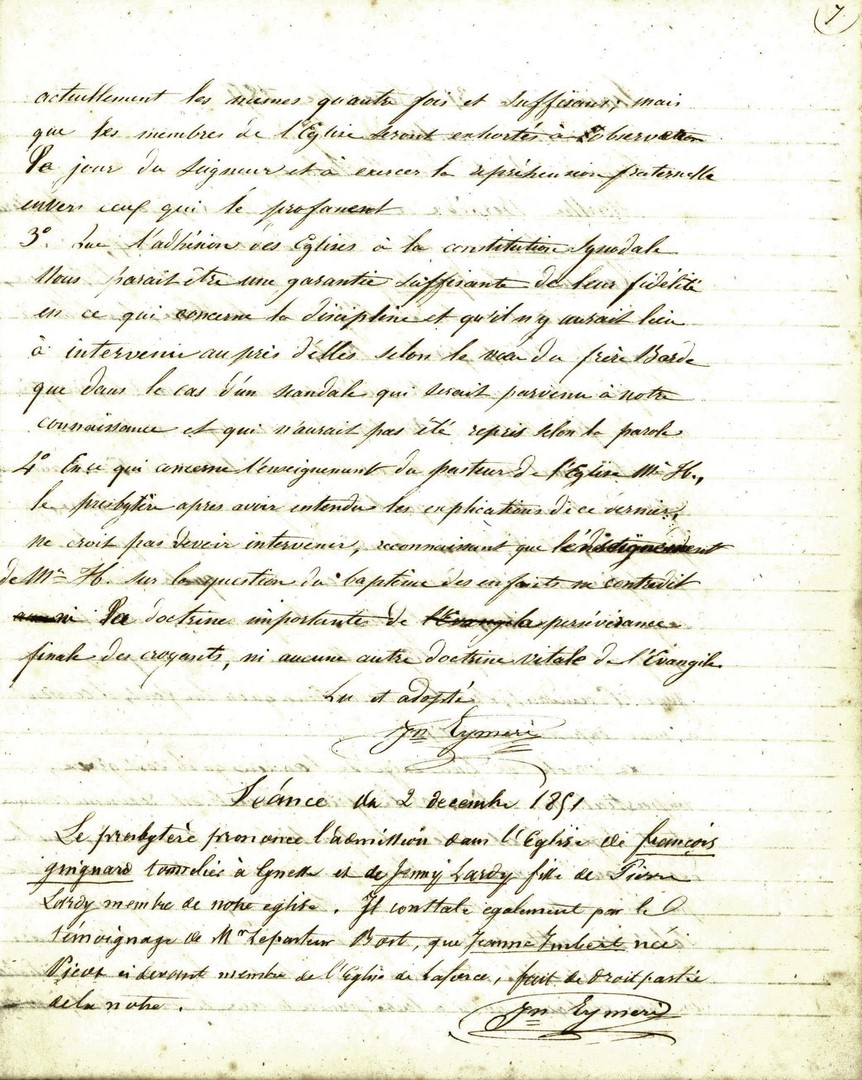 7
actuellement les mêmes quatre fois est suffisant, mais
que les membres de l'Eglise seront exhortés à l'observation
Du jour du Seigneur et à exercer la répréhension fraternelle
envers ceux qui le profanent
3° Que l'adhésion des Eglises à la constitution Synodale
Nous parait être une garantie suffisante de leur fidélité
en ce qui concerne la discipline et qu'il n'y aurait lieu
à intervenir auprès d'elles selon le vœu du frère Barde
que dans le cas d'un scandale qui serait parvenu à notre
connaissance et qui n'aurait pas été repris selon la parole
4° En ce qui concerne l'enseignement du pasteur de l'Eglise Mr H.,
le presbytère apres avoir entendu les explications de ce dernier,
ne croit pas devoir intervenir, reconnaissant que l'enseignement
de Mr H. sur la question du baptême des enfants ne contredit
ni la doctrine importante de la persévérance
finale des croyants, ni aucune autre doctrine vitale de l'Evangile
Lu et adopté
Jn Eymeri
Séance du 2 decembre 1851
Le presbytère prononce l'admission dans l'Eglise de françois
guignard domicilié à Eynesse et de Jenny Lardy fille de Pierre
Lardy membre de notre eglise. Il constate également par le
témoignage de Mr le pasteur Bost, que Jeanne Imbert née
ci devant membre de l'Eglise de Laforce, fait de droit partie
de la notre.
Jn Eymeri